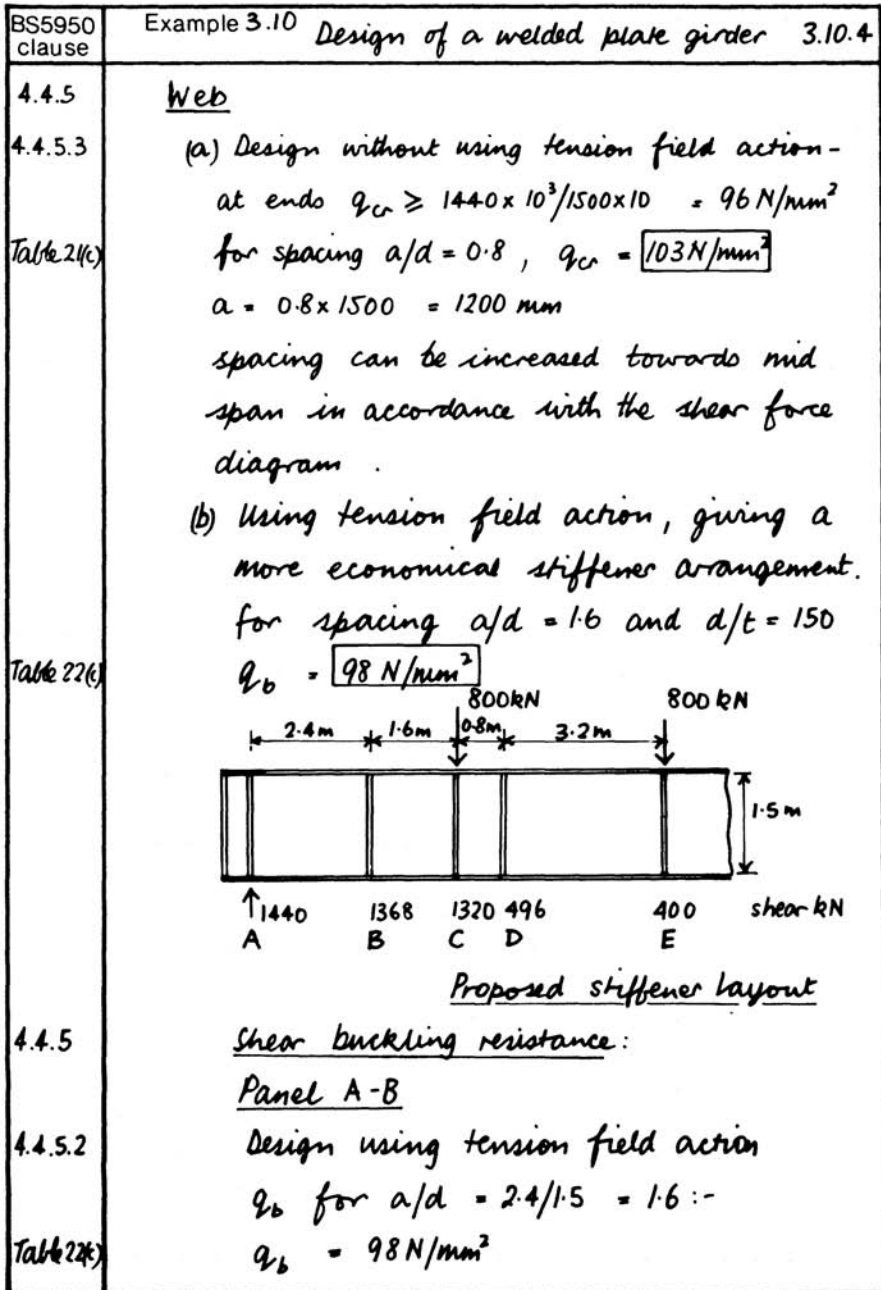 BS5950 clause
Example 3.10 Design of a welded plate girder 3.10.4
4.4.5 Web
4.4.5.3 (a) Design without using tension field action -
at ends q_cr ≥ 1440 x 10³/1500x10 = 96 N/mm²
Table 21(c) for spacing a/d = 0.8 , q_cr = 103 N/mm²
a = 0.8 x 1500 = 1200 mm
spacing can be increased towards mid
span in accordance with the shear force
diagram .
(b) Using tension field action, giving a
more economical stiffener arrangement.
for spacing a/d = 1.6 and d/t = 150
Table 22(c) q_b = 98 N/mm²
800kN 800 kN
2.4m 1.6m 0.8m 3.2m
1.5 m
↑1440 1368 1320 496 400 shear kN
A B C D E
Proposed stiffener layout
4.4.5 Shear buckling resistance:
Panel A-B
4.4.5.2 Design using tension field action
q_b for a/d = 2.4/1.5 = 1.6 :-
Table 22(c) q_b = 98 N/mm²